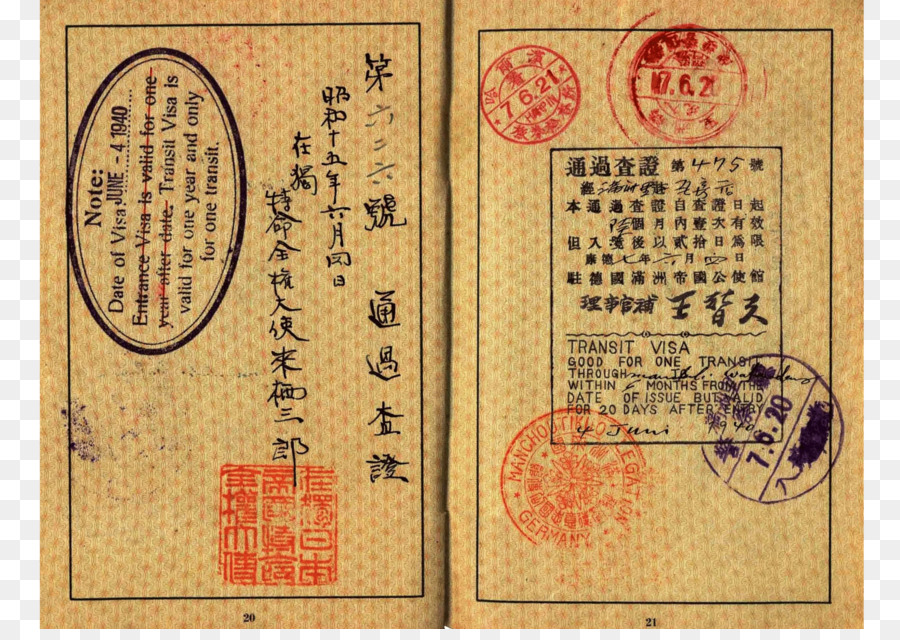 Note:
Date of Visa JUNE - 4 1940
Entrance Visa is valid for one
year after date. Transit Visa is
valid for one year and only
for one transit.
第六二六號 通過査證
昭和十五年六月四日
在獨
特命全權大使来栖三郎
20
7.6.21
HARPIN
7.6.21
通過査證 第475號
本通過査證自査證日起
陸個月內壹次有效
但入境後以貳拾日為限
康德七年六月四日
駐德國滿洲帝國公使館
理事官補 王替夫
TRANSIT VISA
GOOD FOR ONE TRANSIT
THROUGH
WITHIN 6 MONTHS FROM THE
DATE OF ISSUE BUT VALID
FOR 20 DAYS AFTER ENTRY
4 Juni 1940
7.6.20
MANCHOUTIKUO LEGATION
GERMANY
21